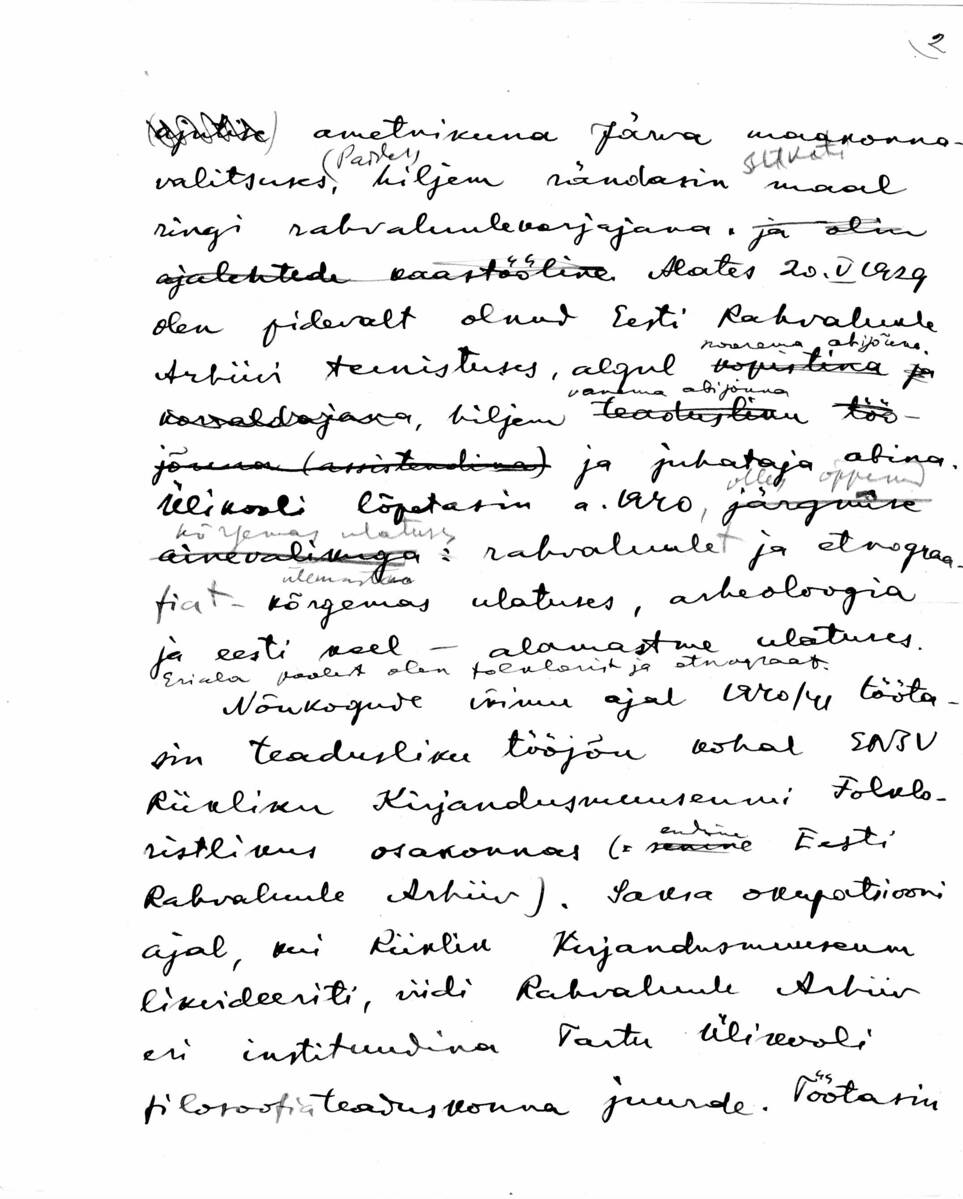 2
(ajutise) ametnikuna Järva maakonna-
(Paides) sitkati
valitsuses, hiljem rändasin maal
ringi rahvaluulekorjajana. ja olin
ajalehtede kaastööline. Alates 20. V 1929
olen pidevalt olnud Eesti Rahvaluule
noorema abijõuna,
Arhiivi teenistuses, algul kopistina ja
vanema abijõuna
korraldajana, hiljem teadusliku töö-
jõuna (assistendina) ja juhataja abina.
olles õppinud
Ülikooli lõpetasin a. 1940, järgmise
kõrgemas ulatuses
ainevalikuga: rahvaluulet ja etnograa-
ülemastme
fiat - kõrgemas ulatuses, arheoloogia
ja eesti keel – alamastme ulatuses.
Eriala poolest olen folklorist ja etnograaf.
Nõukogude võimu ajal 1940/41 tööta-
sin teadusliku tööjõu kohal ENSV
Riikliku Kirjandusmuuseumi Folklo-
ristlikus osakonnas (= senine
endine
Eesti
Rahvaluule Arhiiv). Saksa okupatsiooni
ajal, kui Riiklik Kirjandusmuuseum
likvideeriti, viidi Rahvaluule Arhiiv
eri instituudina Tartu Ülikooli
filosoofiateaduskonna juurde. Töötasin